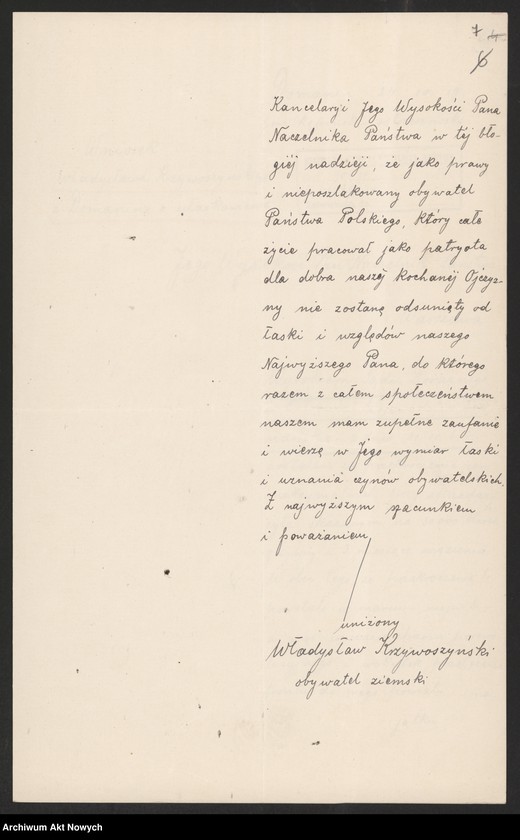 7 4
6
Kancelaryi Jego Wysokości Pana
Naczelnika Państwa w téj bło-
giéj nadzieji, że jako prawy
i nieposzlakowany obywatel
Państwa Polskiego, który całe
życie pracował jako patryota
dla dobra naszéj kochanéj Ojczyz-
ny nie zostanę odsunięty od
łaski i względów naszego
Najwyższego Pana, do którego
razem z całem społeczeństwem
naszem mam zupełne zaufanie
i wierzę w Jego wymiar łaski
i uznania czynów obywatelskich.
Z najwyższym szacunkiem
i poważaniem
uniżony
Władysław Krzywoszyński
obywatel ziemski
Archiwum Akt Nowych